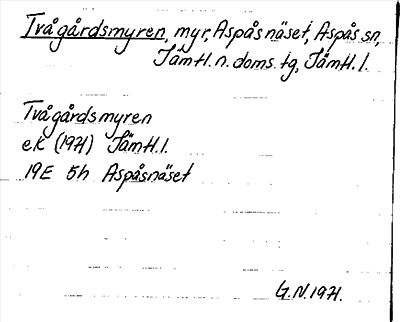 Tvågårdsmyren, myr, Aspåsnäset, Aspås sn,
Jämtl. n. doms. tg, Jämtl. l.
Tvågårdsmyren
ek (1971) Jämtl. l.
19E 5h Aspåsnäset
G.N. 1971.